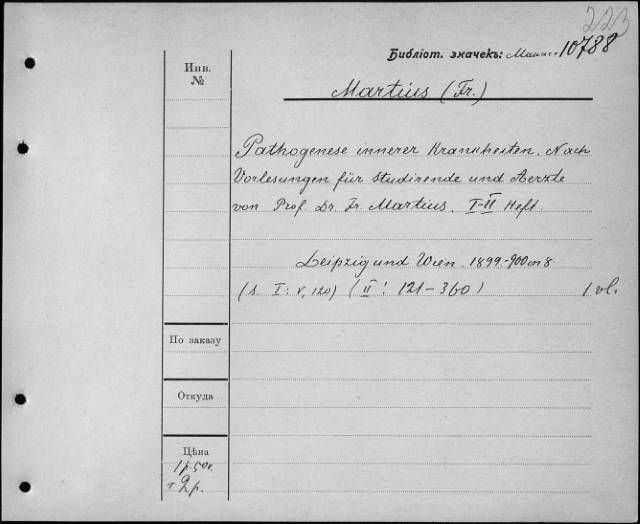 223
Библіот. значекъ: 10788
Инв.
№
Martius (Fr.)
Pathogenese innerer Krankheiten. Nach
Vorlesungen für Studirende und Aerzte
von Prof. Dr. Fr. Martius. I-II Heft.
Leipzig und Wien. 1899-900 in 8
(S. I: V, 120) (II: 121-360) 1 vl.
По заказу
Откуда
Цѣна
1 p. 50 к.
+ 2 p.